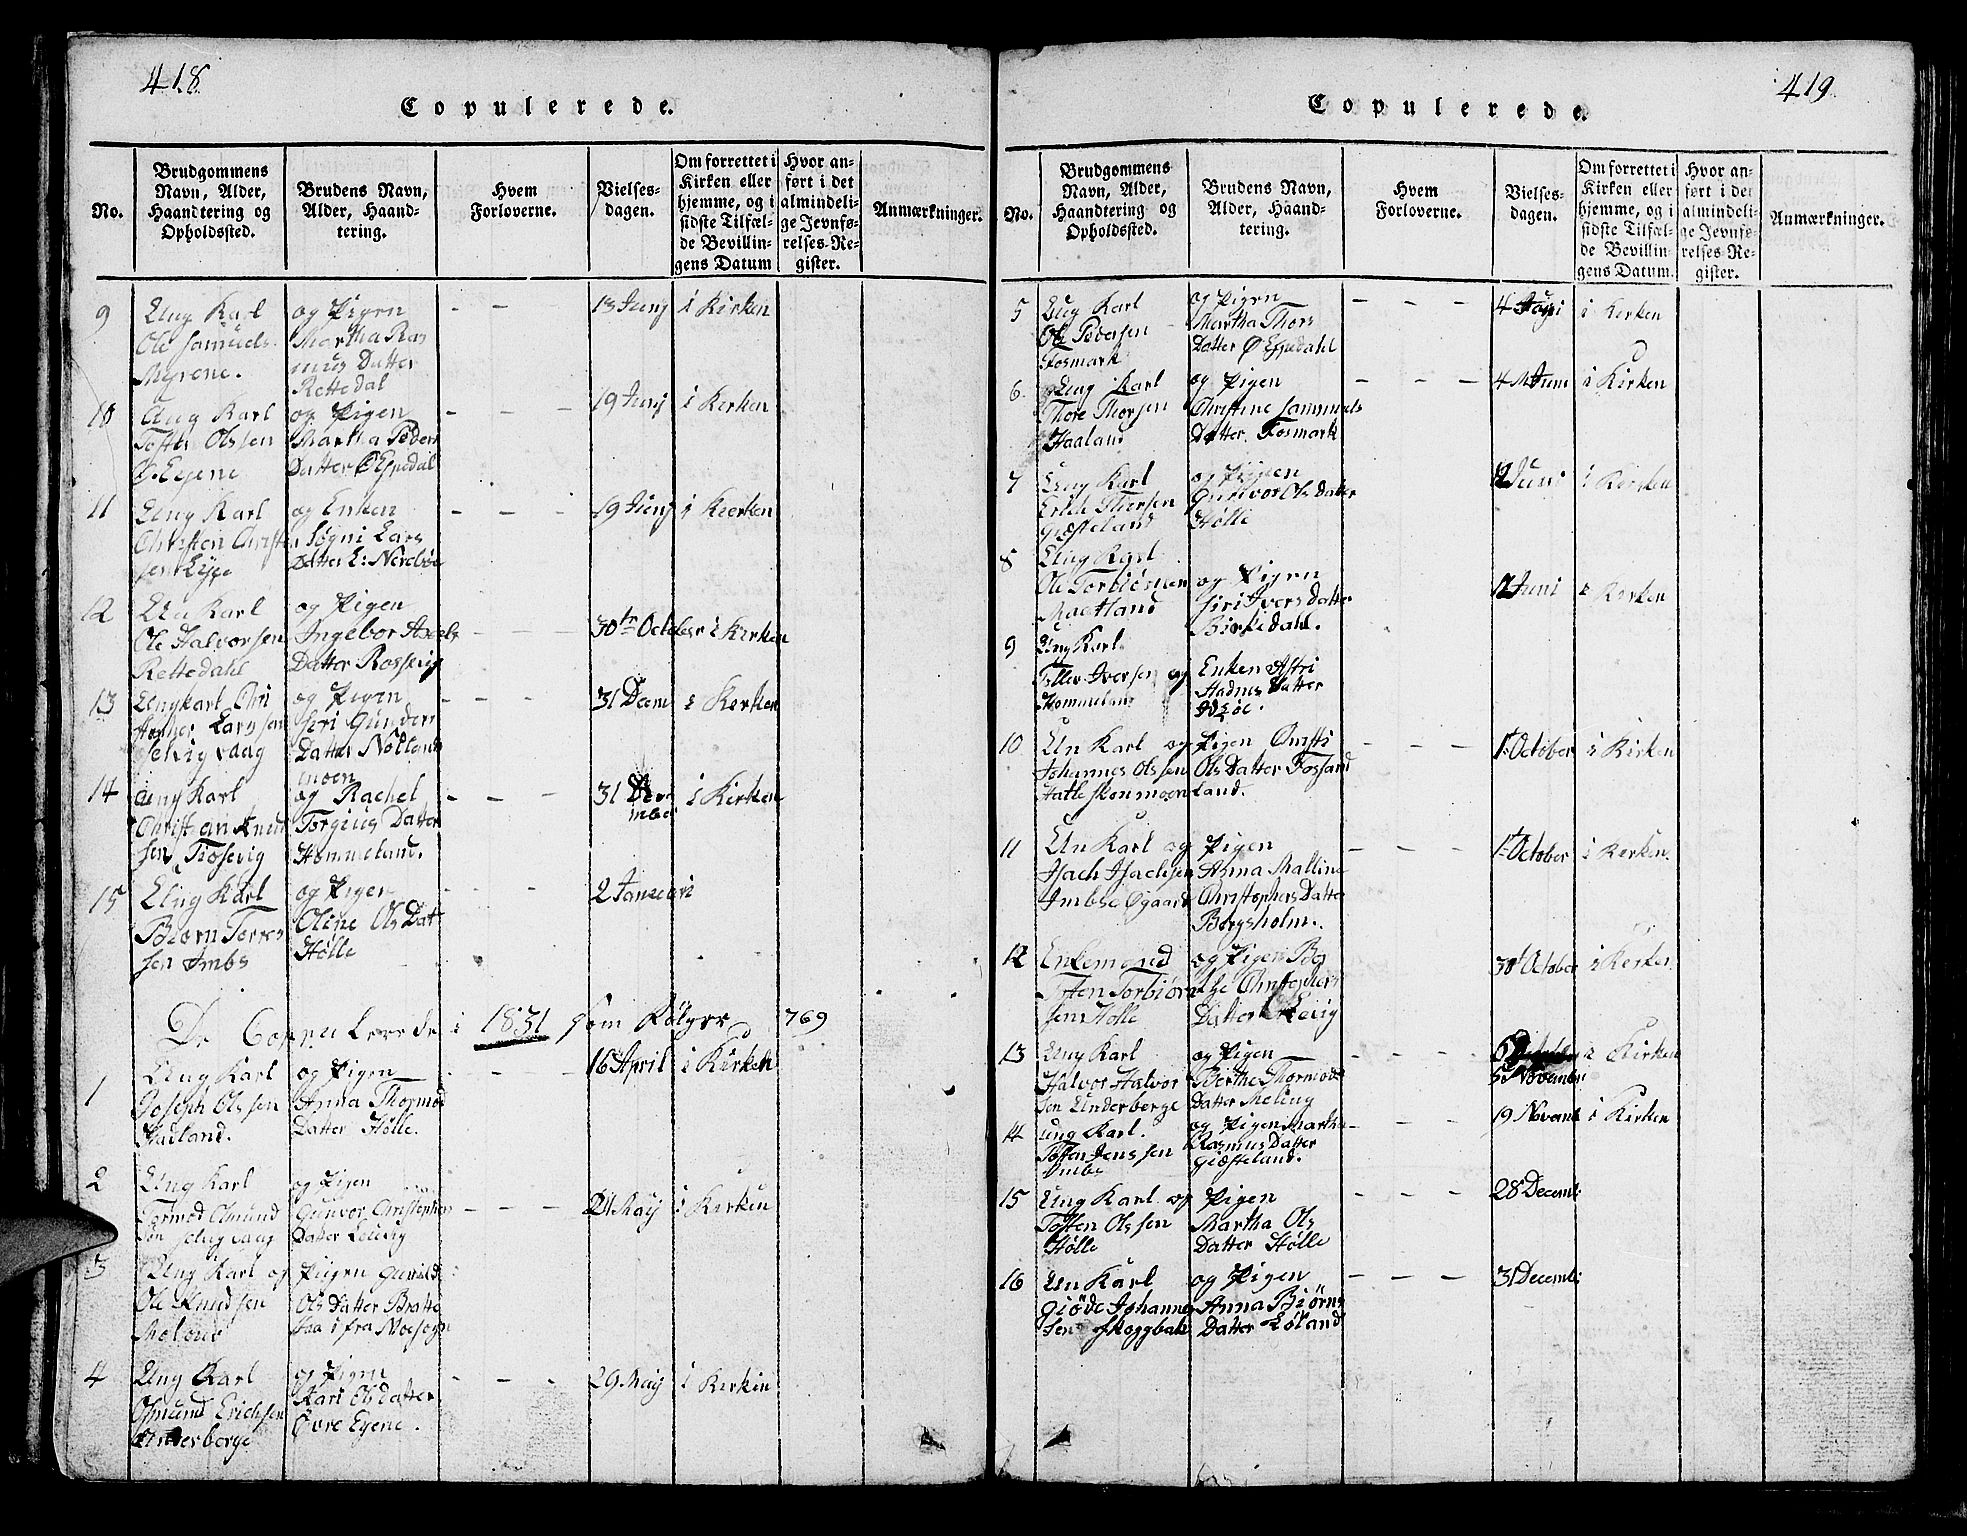 418
Copulerede.
No.
Brudgommens
Navn, Alder,
Haandtering og
Opholdssted.
Brudens Navn,
Alder, Haand-
tering.
Hvem
Forloverne.
Vielses-
dagen.
Om forrettet i
Kirken eller
hjemme, og i
sidste Tilfæl-
de Bevillin-
gens Datum
Hvor an-
ført i det
almindeli-
ge Jevnfø-
relses-Re-
gister.
Anmærkninger.
9
Ung Karl
Ole Samuels
Myrene.
og Pigen
Martha Ras
mus Datter
Rettedal
- - -
13 Junj
i Kirken
10
Ung Karl
Olssen
Ø. Eyene
og Pigen
Martha Peders
Datter Ø Espedal
- - -
19 Junj
i Kerken
11
Ung Karl
Christen Christe
sen Eyje
og Enken
Søgni Lars
Datter L: Nerebøe
- - -
19 Junj
i Keerken
12
Un Karl
Ole Halvorsen
Rettedahl
og Pigen
Ingebor Axels
Datter Rossevig
- - -
30te October
i Kirken
13
Ungkarl Chri
Larssen
Selvigvaag
og Pigen
Seri Gunders
Datter Notland
moen
- - -
31 Decm
i Kerken
14
Ung Karl
Christian Knud
sen Tiosevig
og Rachel
Torgius Datter
Hommeland.
- - -
31 De
mber
i Kirken
15
Ung Karl
Biørn Torres
sen Imbs
og Pigen
Oline Ols Dat
Hølle
- - -
2 Januari
De Copulerede i 1831 som Følger 769
1
Ung Karl
Joseph Olssen
Hadland.
og Pigen
Anna Thormod
Datter Hølle.
- - -
16 April
i Kirken
2
Ung Karl
Tormod Omund
sen Selvigvaag
og Pigen
Gunvor Christopher
Datter Leivig
- - -
24 May
i Kerken
3
Ung Karl og
Ole Knudsen
Meland
Piigen Gunild
Ols Datter Bratte
4
Ung Karl
Osmund Erichsen
Underberge
og Pigen
Kari Olsdatter
Øvre Eyene.
- - -
29 May
i Kerken
419
Copulerede.
No.
Brudgommens
Navn, Alder,
Haandtering og
Opholdssted.
Brudens Navn,
Alder, Haand-
tering.
Hvem
Forloverne.
Vielses-
dagen.
Om forrettet i
Kirken eller
hjemme, og i
sidste Tilfæl-
de Bevillin-
gens Datum.
Hvor an-
ført i det
almindeli-
ge Jevnfø-
relses-Re-
gister.
Anmærkninger.
5
Ung Karl
Ole Pedersen
Fosmark
og Pigen
Martha Thors
Datter Ø Espedahl
- - -
4
i Kerken
6.
Ung Karl
Thore Thorsen
Haaland
og Pigen
Christine Sammuels
Datter Fosmark
- - -
4 Juni
i Kirken
7
Ung Karl
Erich Thorsen
Giæsteland
og Pigen
Gunvor Ols Datter
Hølle
12 Juni
i Kerken
8
Ung Karl
Ole Torbiørnsen
Maeland
og Pigen
Siri Ivers Datter
Birkedahl.
12 Juni
i Kerken
9
Ung Karl
Tollev Iversen og
Hommeland
Enken Astri
Hadnes Datter
Idsøe.
10
Un Karl og
Johannes Olssen
Hatleskonmoen
Pigen Christi
Ols Datter Fossand
land.
- - -
1t October
i Kirken
11
Un Karl og
Isach Isachsen
Imbse Øgaard
Pigen
Anna Malline
Christophers Datter
Borgsholm.
- - -
1t October
i Kerken.
12
Enkemand
Torbiørn
sen Hølle
og Pigen Ber
the Christophers
Datter Leivig
30t October
i Kerken
13
Ung Karl
Halvor Halvor
sen Underberge
og Pigen
Berthe Thormods
Datter Meling
- - -
Novembr
i Kirken
14
ung Karl.
Tosten Jenssen
Imbs
og Pigen Martha
Rasmus Datter
Giæsteland.
- - -
19 Novemb
i Kirken
15
Ung Karl og
Tosten Olssen
Hølle
Pigen
Martha Ols
Datter Hølle
- - -
28 Decemb:
16
Un Karl
Giöde Johannes
sen Skoggbak
og Pigen
Anna Biørns
Datter Løland
- - -
31 Decemb: